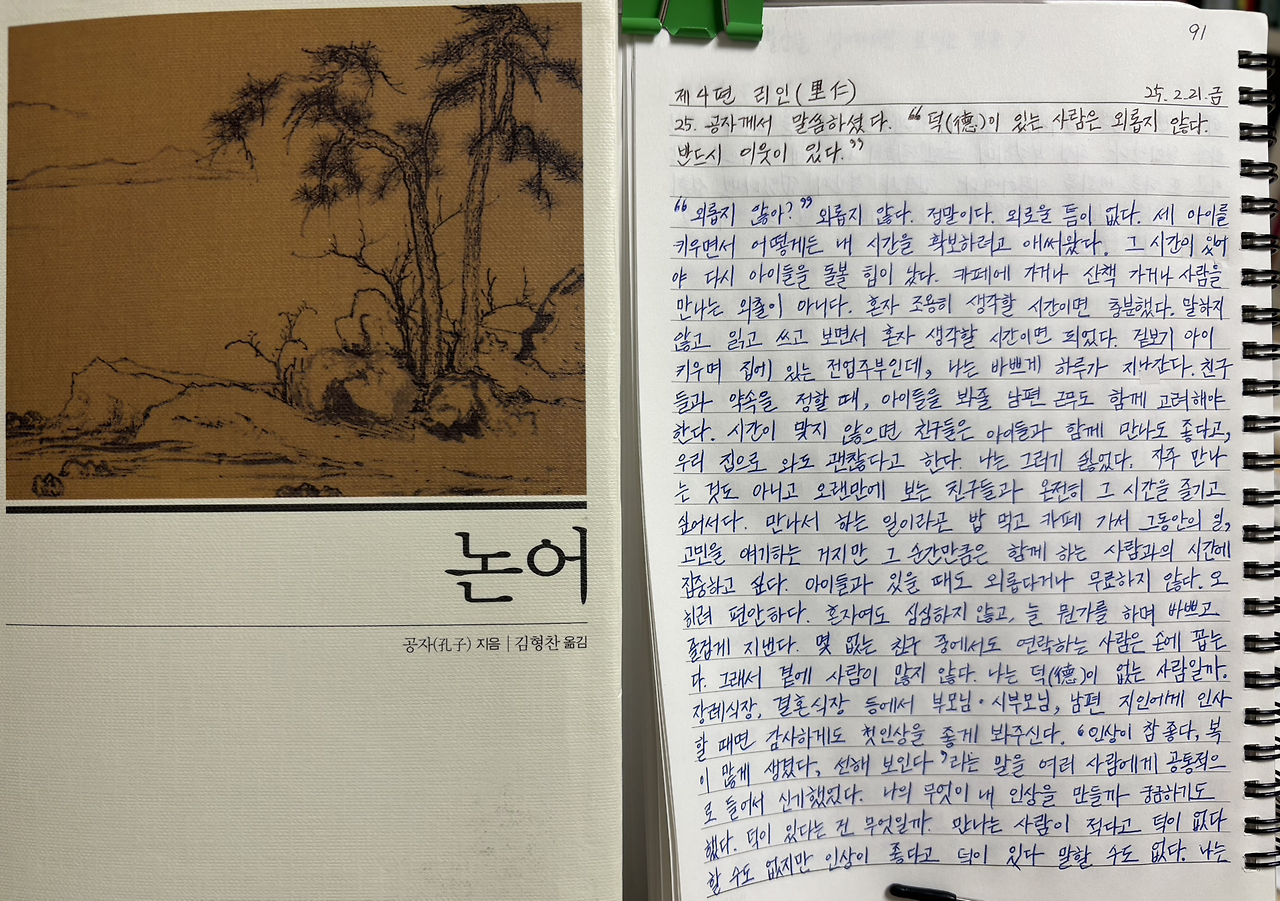 논어
공자(孔子) 지음 | 김형찬 옮김
91
제4편 리인(里仁) 25. 2. 21. 금
25. 공자께서 말씀하셨다. “덕(德)이 있는 사람은 외롭지 않다.
반드시 이웃이 있다.”
“외롭지 않아?” 외롭지 않다. 정말이다. 외로울 틈이 없다. 세 아이를
키우면서 어떻게든 내 시간을 확보하려고 애써왔다. 그 시간이 있어
야 다시 아이들을 돌볼 힘이 났다. 카페에 가거나 산책 가거나 사람을
만나는 외출이 아니다. 혼자 조용히 생각할 시간이면 충분했다. 말하지
않고 읽고 쓰고 보면서 혼자 생각할 시간이면 되었다. 겉보기 아이
키우며 집에 있는 전업주부인데, 나는 바쁘게 하루가 지나간다. 친구
들과 약속을 정할 때, 아이들을 봐줄 남편 근무도 함께 고려해야
한다. 시간이 맞지 않으면 친구들은 아이들과 함께 만나도 좋다고,
우리 집으로 와도 괜찮다고 한다. 나는 그러기 싫었다. 자주 만나
는 것도 아니고 오랜만에 보는 친구들과 온전히 그 시간을 즐기고
싶어서다. 만나서 하는 일이라곤 밥 먹고 카페 가서 그동안의 일,
고민을 얘기하는 거지만 그 순간만큼은 함께 하는 사람과의 시간에
집중하고 싶다. 아이들과 있을 때도 외롭다거나 무료하지 않다. 오
히려 편안하다. 혼자여도 심심하지 않고, 늘 뭔가를 하며 바쁘고
즐겁게 지낸다. 몇 없는 친구 중에서도 연락하는 사람은 손에 꼽는
다. 그래서 곁에 사람이 많지 않다. 나는 덕(德)이 없는 사람일까.
장례식장, 결혼식장 등에서 부모님·시부모님, 남편 지인에게 인사
할 때면 감사하게도 첫인상을 좋게 봐주신다. “인상이 참 좋다, 복
이 많게 생겼다, 선해 보인다”라는 말을 여러 사람에게 공통적으
로 들어서 신기했었다. 나의 무엇이 내 인상을 만들까 궁금하기도
했다. 덕이 있다는 건 무엇일까. 만나는 사람이 적다고 덕이 없다
할 수도 없지만 인상이 좋다고 덕이 있다 말할 수도 없다. 나는